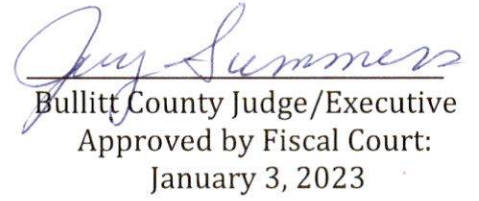 Jerry Summers
Bullitt County Judge/Executive
Approved by Fiscal Court:
January 3, 2023